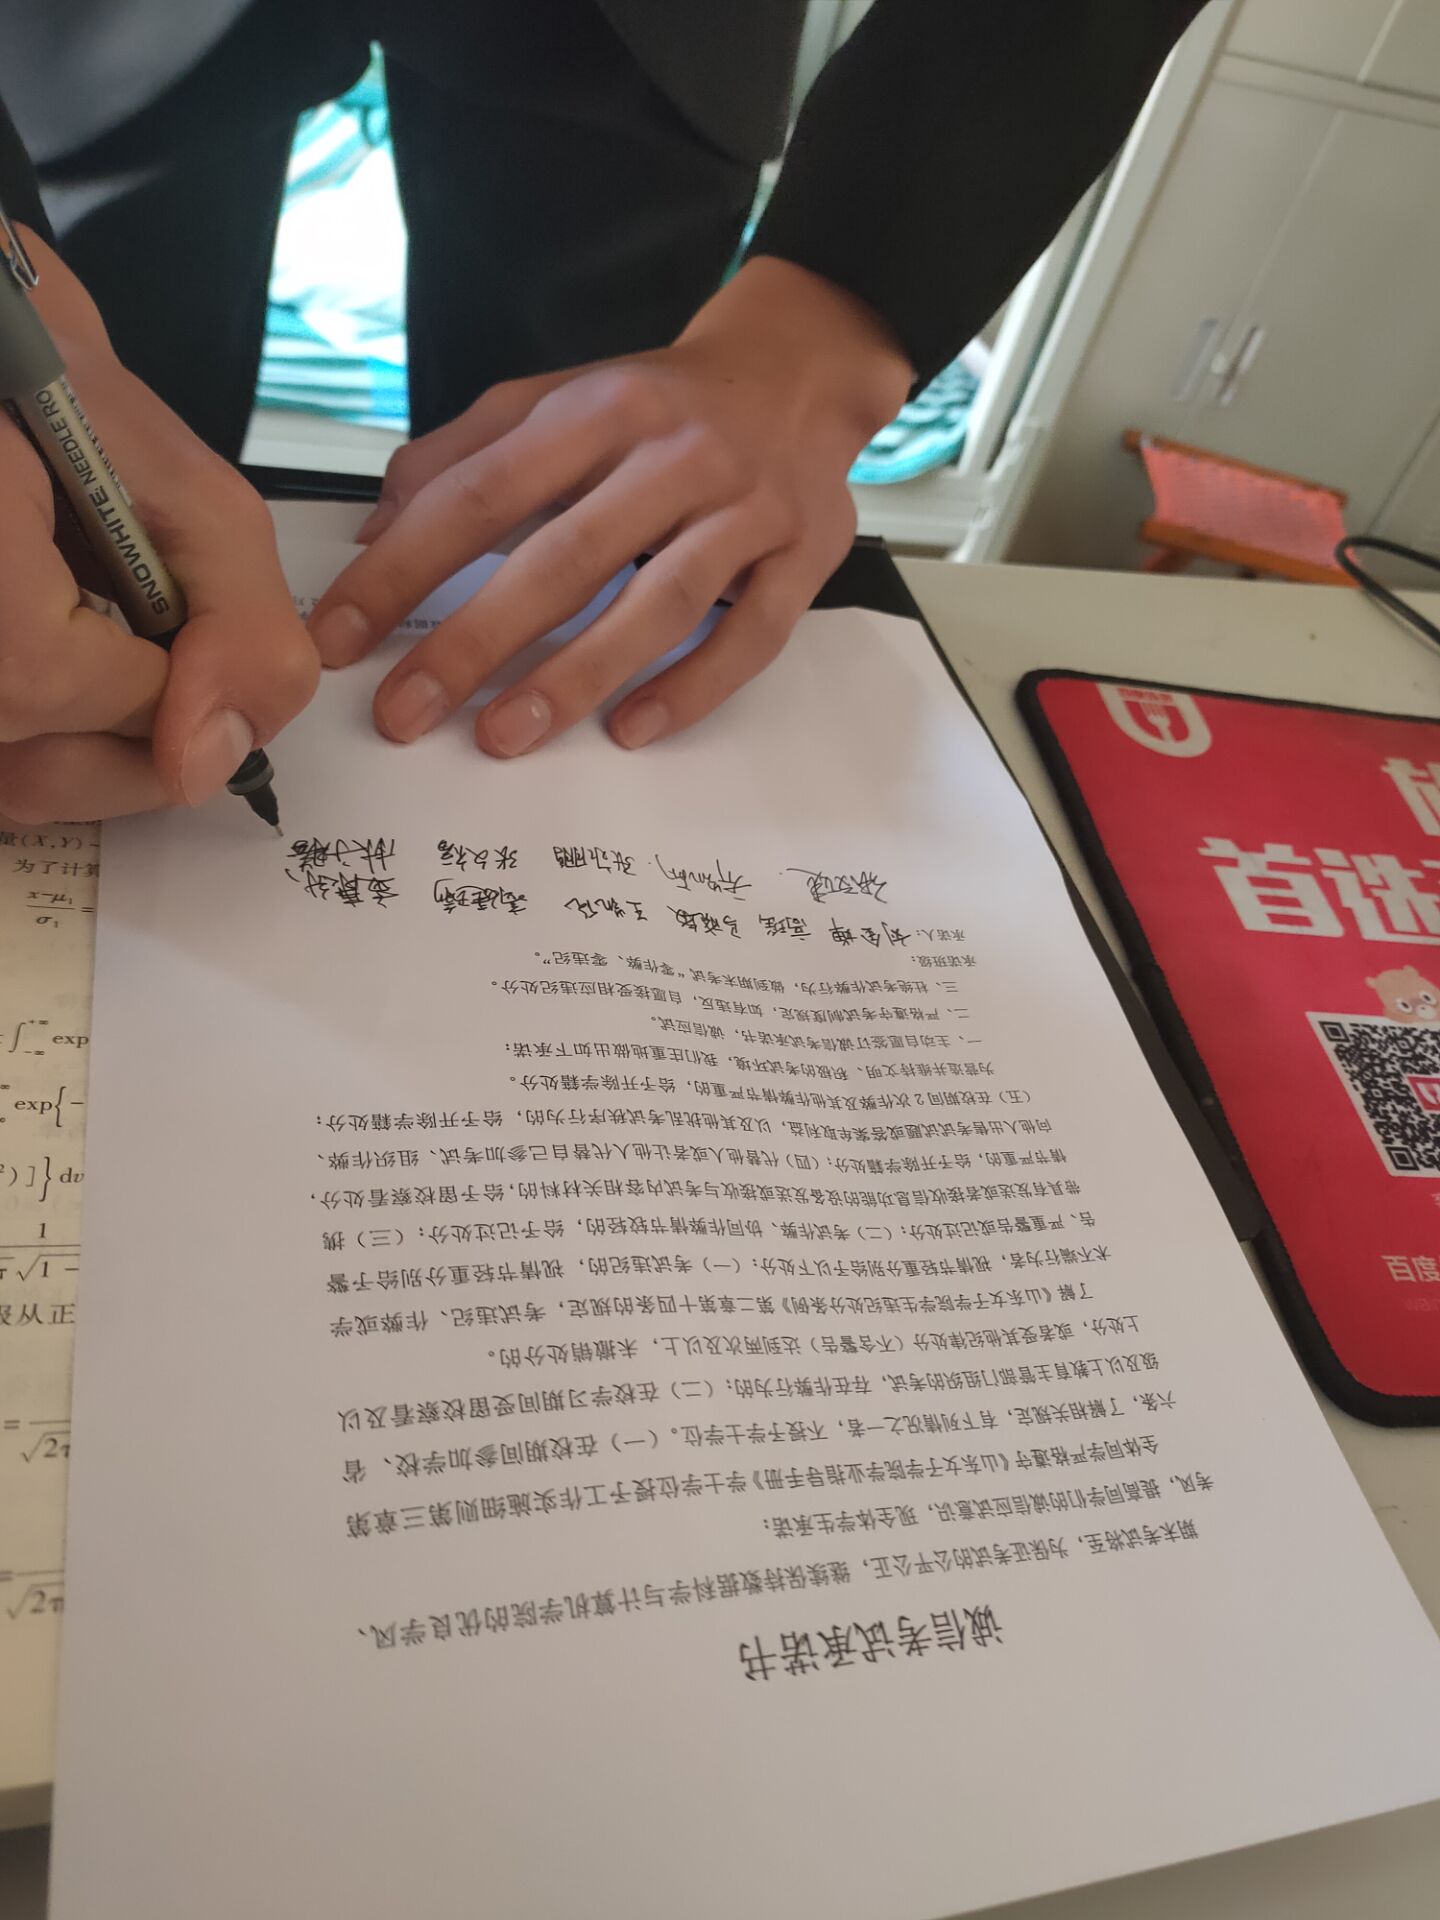 诚信考试承诺书
期末考试将至，为保证考试的公平公正，继续保持数据科学与计算机学院的优良学风、
考风，提高同学们的诚信应试意识，现全体学生承诺：
全体同学严格遵守《山东女子学院学业指导手册》学士学位授予工作实施细则第三章第
六条，了解相关规定，有下列情况之一者，不授予学士学位。（一）在校期间参加学校、省
级及以上教育主管部门组织的考试，存在作弊行为的；（二）在校学习期间受留校察看及以
上处分，或者受其他纪律处分（不含警告）达到两次及以上，未撤销处分的。
了解《山东女子学院学生违纪处分条例》第二章第十四条的规定，考试违纪、作弊或学
术不端行为者，视情节轻重分别给予以下处分：（一）考试违纪的，视情节轻重分别给予警
告、严重警告或记过处分；（二）考试作弊、协同作弊情节较轻的，给予记过处分；（三）携
带具有发送或者接收信息功能的设备发送或接收与考试内容相关材料的，给予留校察看处分，
情节严重的，给予开除学籍处分；（四）代替他人或者让他人代替自己参加考试、组织作弊、
向他人出售考试试题或答案牟取利益，以及其他扰乱考试秩序行为的，给予开除学籍处分；
（五）在校期间2次作弊及其他作弊情节严重的，给予开除学籍处分。
为营造并维持文明、积极的考试环境，我们庄重地做出如下承诺：
一、主动自愿签订诚信考试承诺书，诚信应试。
二、严格遵守考试制度规定，如有违反，自愿接受相应违纪处分。
三、杜绝考试作弊行为，做到期末考试“零作弊、零违纪”。
承诺班级：
承诺人：刘金婵
SNOWHITE NEEDLE RO
量(X,Y)
为了计算
x-μ₁
σ₁
exp
exp{-
]}dv
√1-
服从正
首选
百度